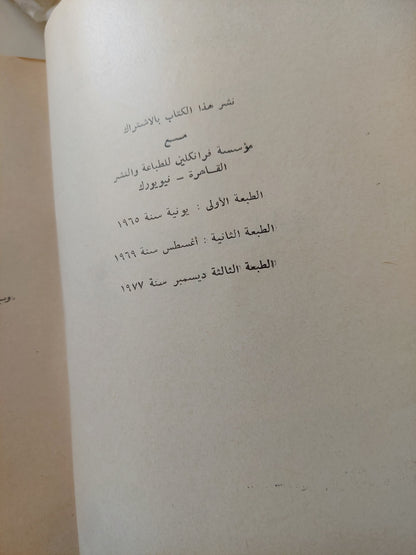 نشر هذا الكتاب بالاشتراك
مع
مؤسسة فرانكلين للطباعة والنشر
القاهرة - نيويورك
الطبعة الأولى : يونية سنة ١٩٦٥
الطبعة الثانية : أغسطس سنة ١٩٦٩
الطبعة الثالثة ديسمبر سنة ١٩٧٧